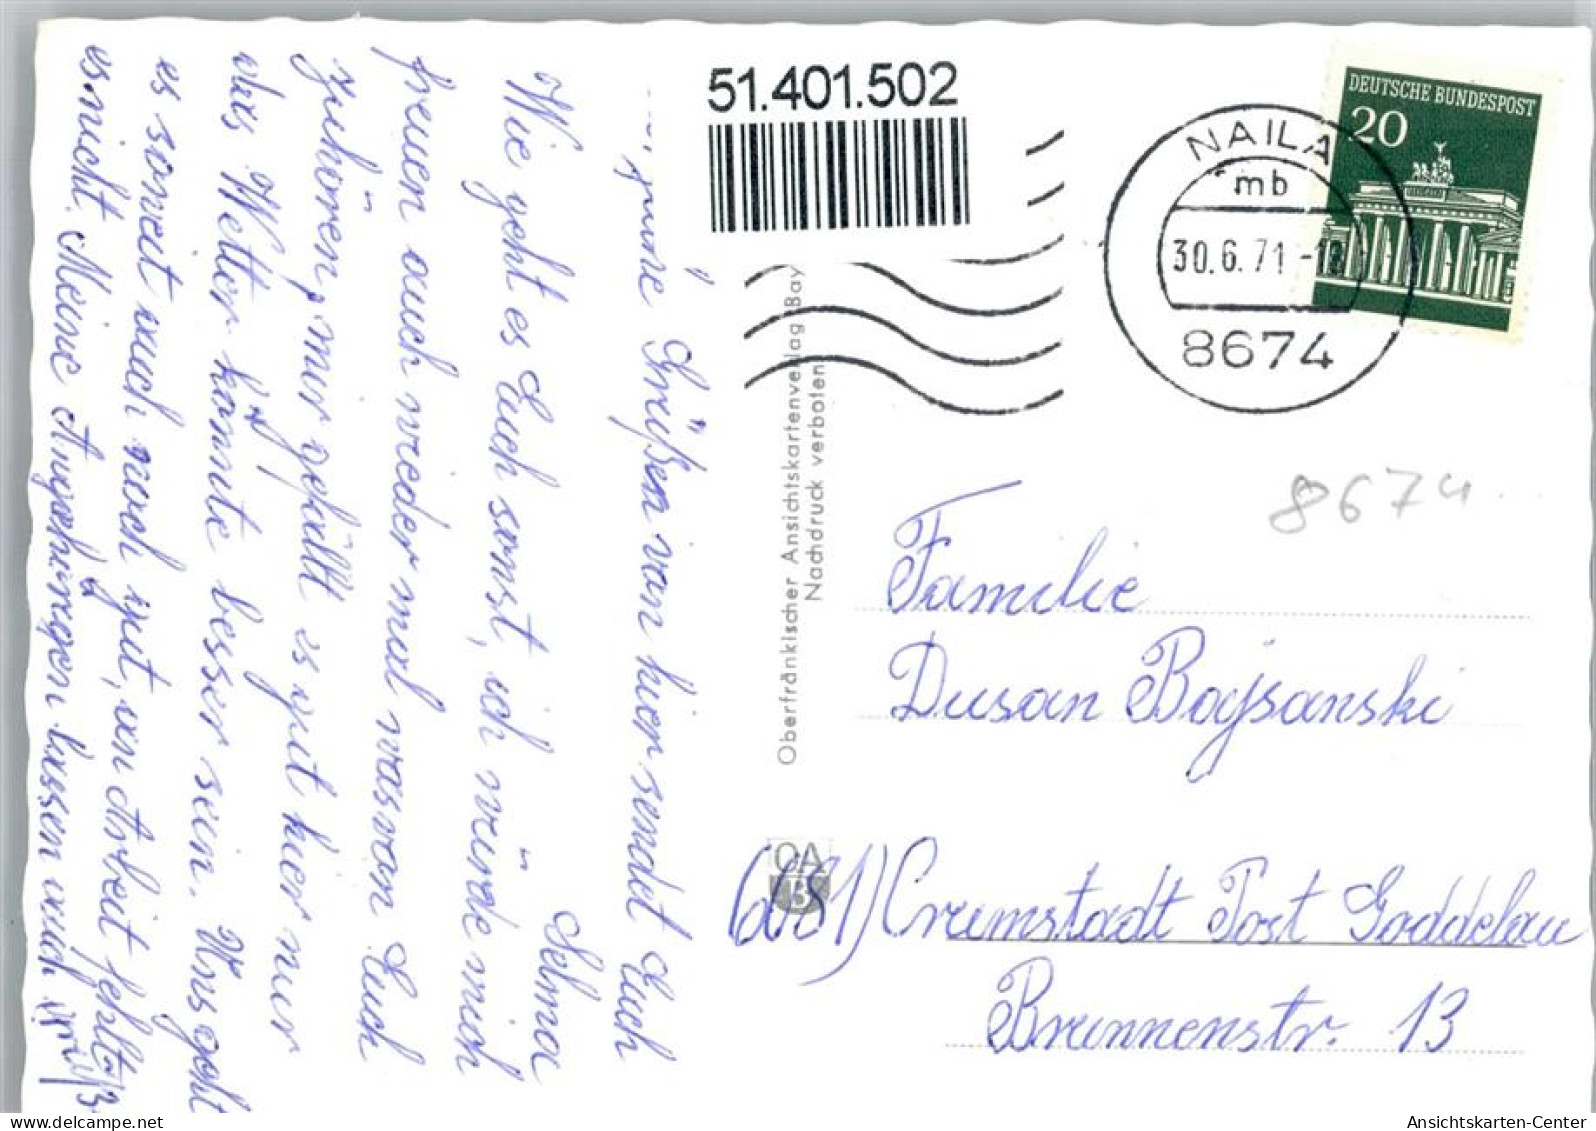 51.401.502
DEUTSCHE BUNDESPOST
20
NAILA
mb
30.6.71-18
8674
8674
grüne Grüßen von hier sendet Euch
Selma
Wie geht es Euch sonst, ich würde mich
freuen auch wieder mal was von Euch
zuhören, mir gefällt es gut hier nur
das Wetter könnte besser sein. Uns geht
es soweit auch noch gut, an Arbeit fehlts
es nicht. Meine Angehörigen lassen auch
Oberfränkischer Ansichtskartenverlag Bay
Nachdruck verboten
OA
B
Familie
Dusan Bojsanski
(6081) Crumstadt Post Goddelau
Brunnenstr. 13
delcampe.net
Ansichtskarten-Center